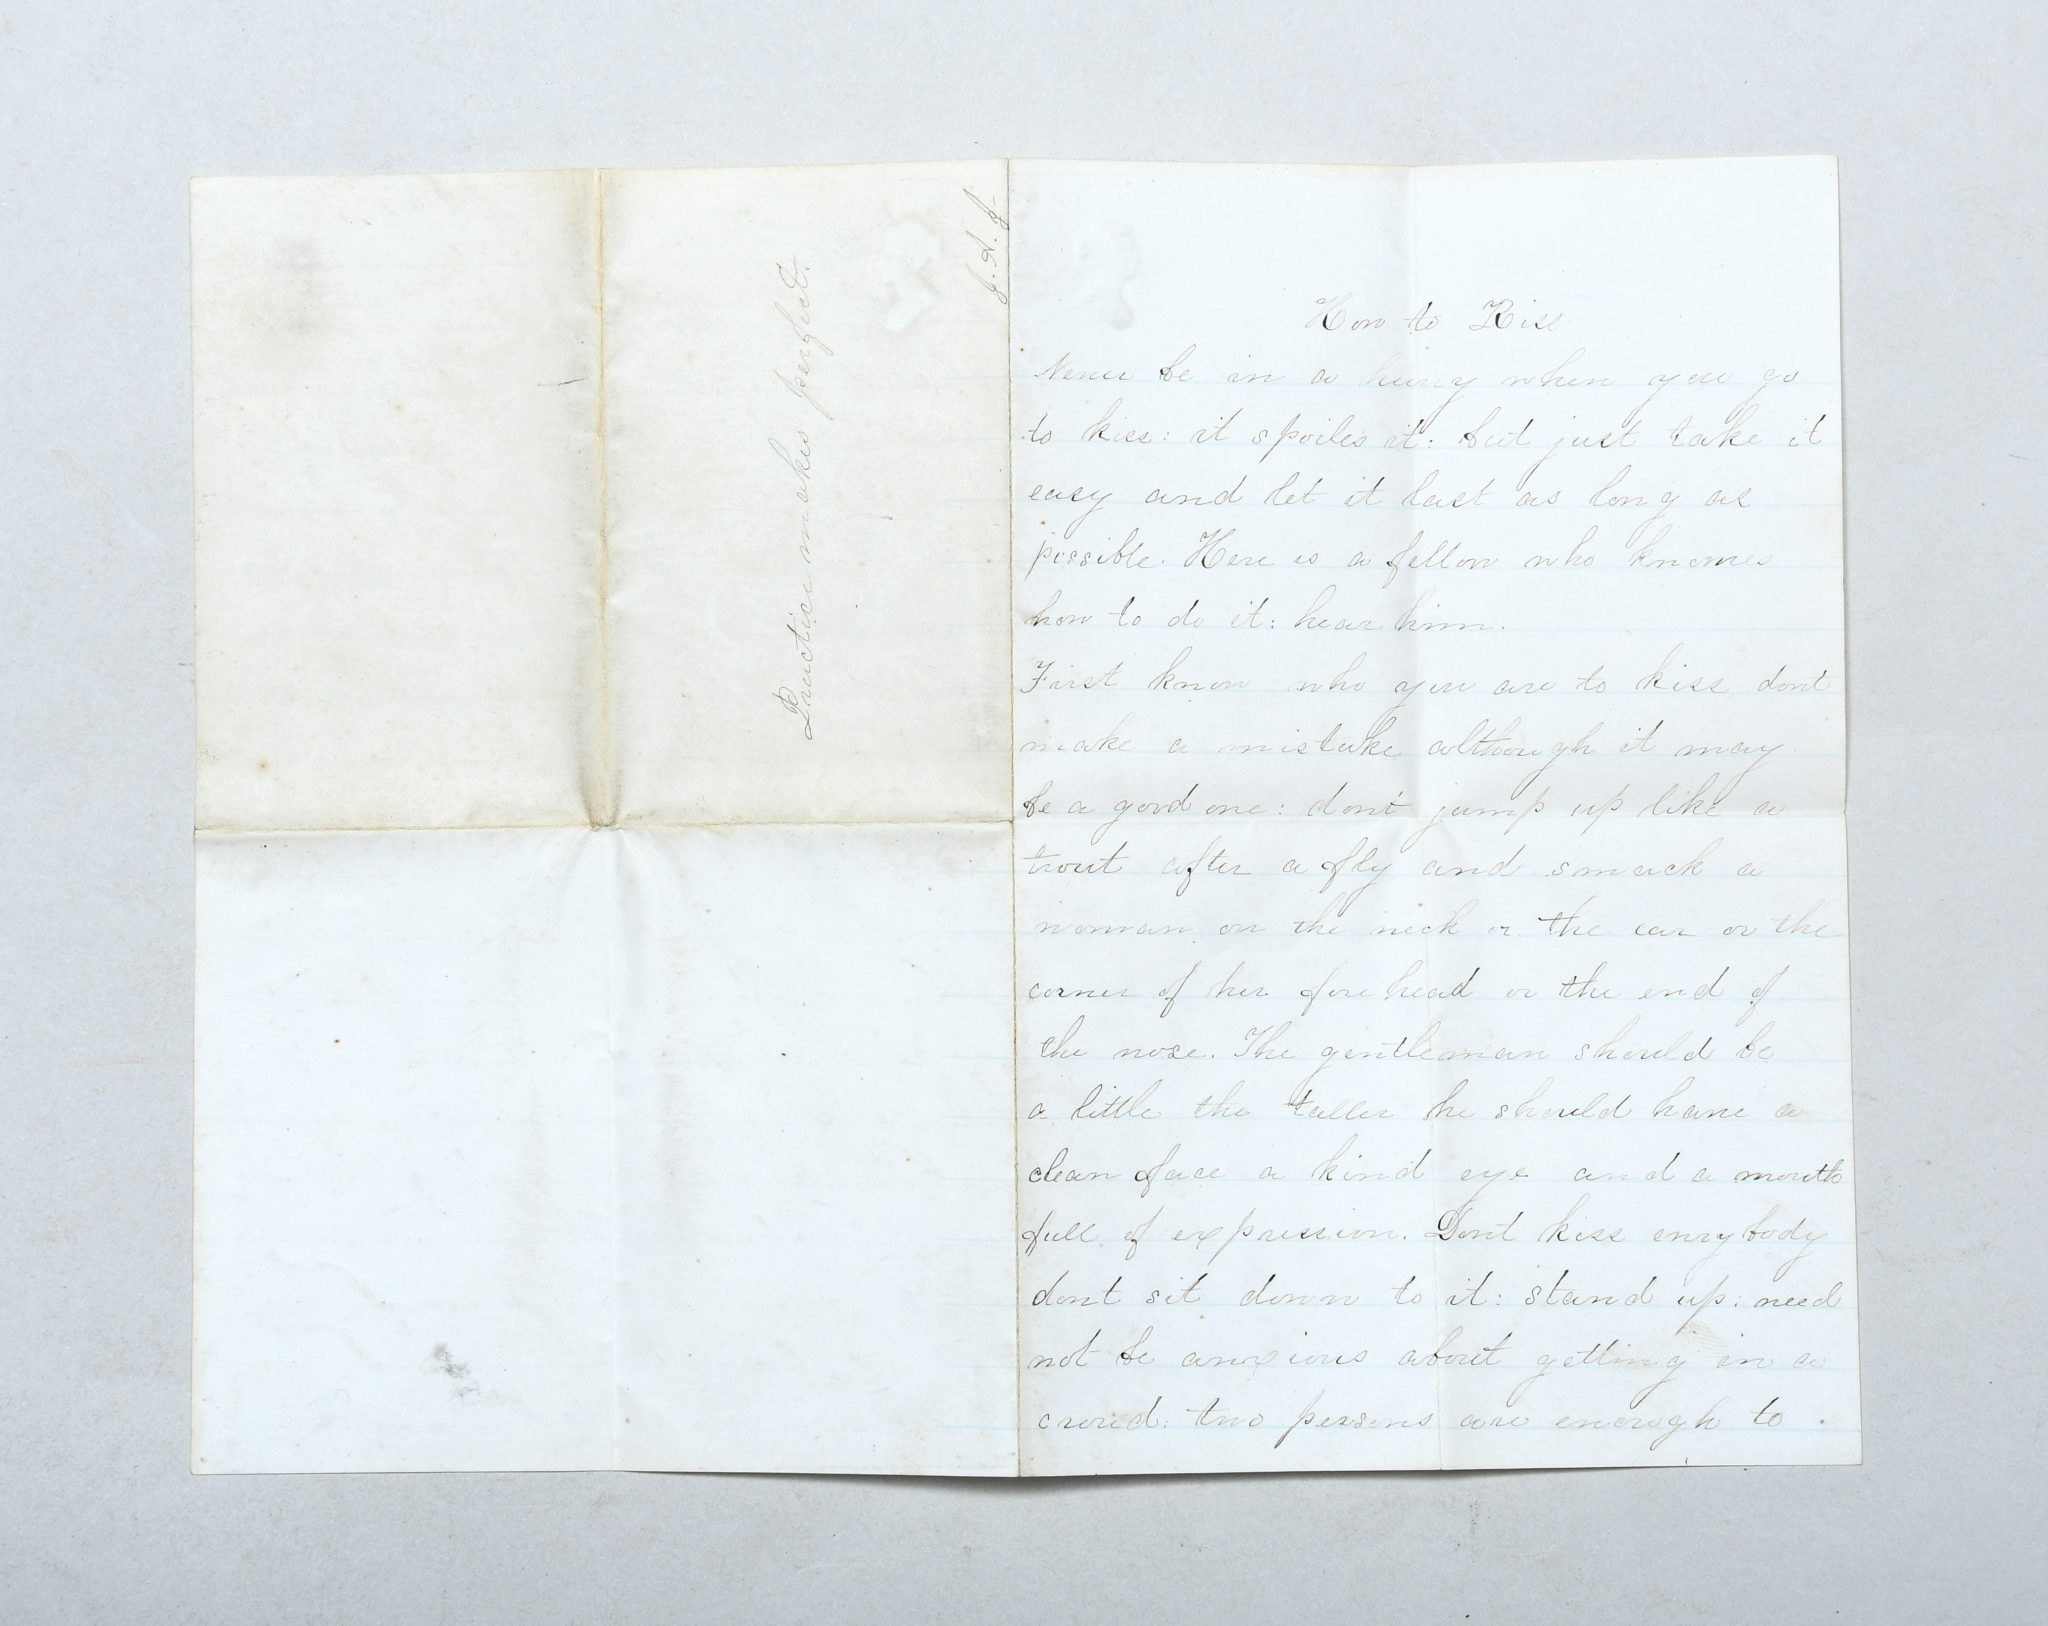 Practice makes perfect.
J. A. J.
How to Kiss
Never be in a hurry when you go
to kiss: it spoiles it: but just take it
easy and let it last as long as
possible. Here is a fellow who knowes
how to do it: hear him.
First know who you are to kiss dont
make a mistake although it may
be a good one: dont jump up like a
trout after a fly and smack a
woman on the neck or the ear or the
corner of her fore head or the end of
the nose. The gentleman should be
a little the taller he should have a
clean face a kind eye and a mouth
full of expression. Dont kiss evrybody
dont sit down to it: stand up: need
not be anxious about getting in a
crowd: two persons are enough to